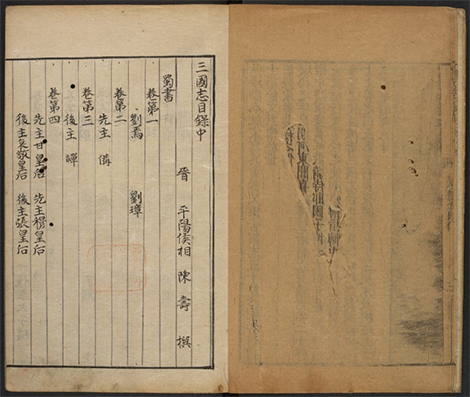 三國志目錄中
晉 平陽侯相 陳壽 撰
蜀書
卷第一
劉焉 劉璋
卷第二
先主備
卷第三
後主禪
卷第四
先主甘皇后 先主穆皇后
後主哀敬皇后 後主張皇后